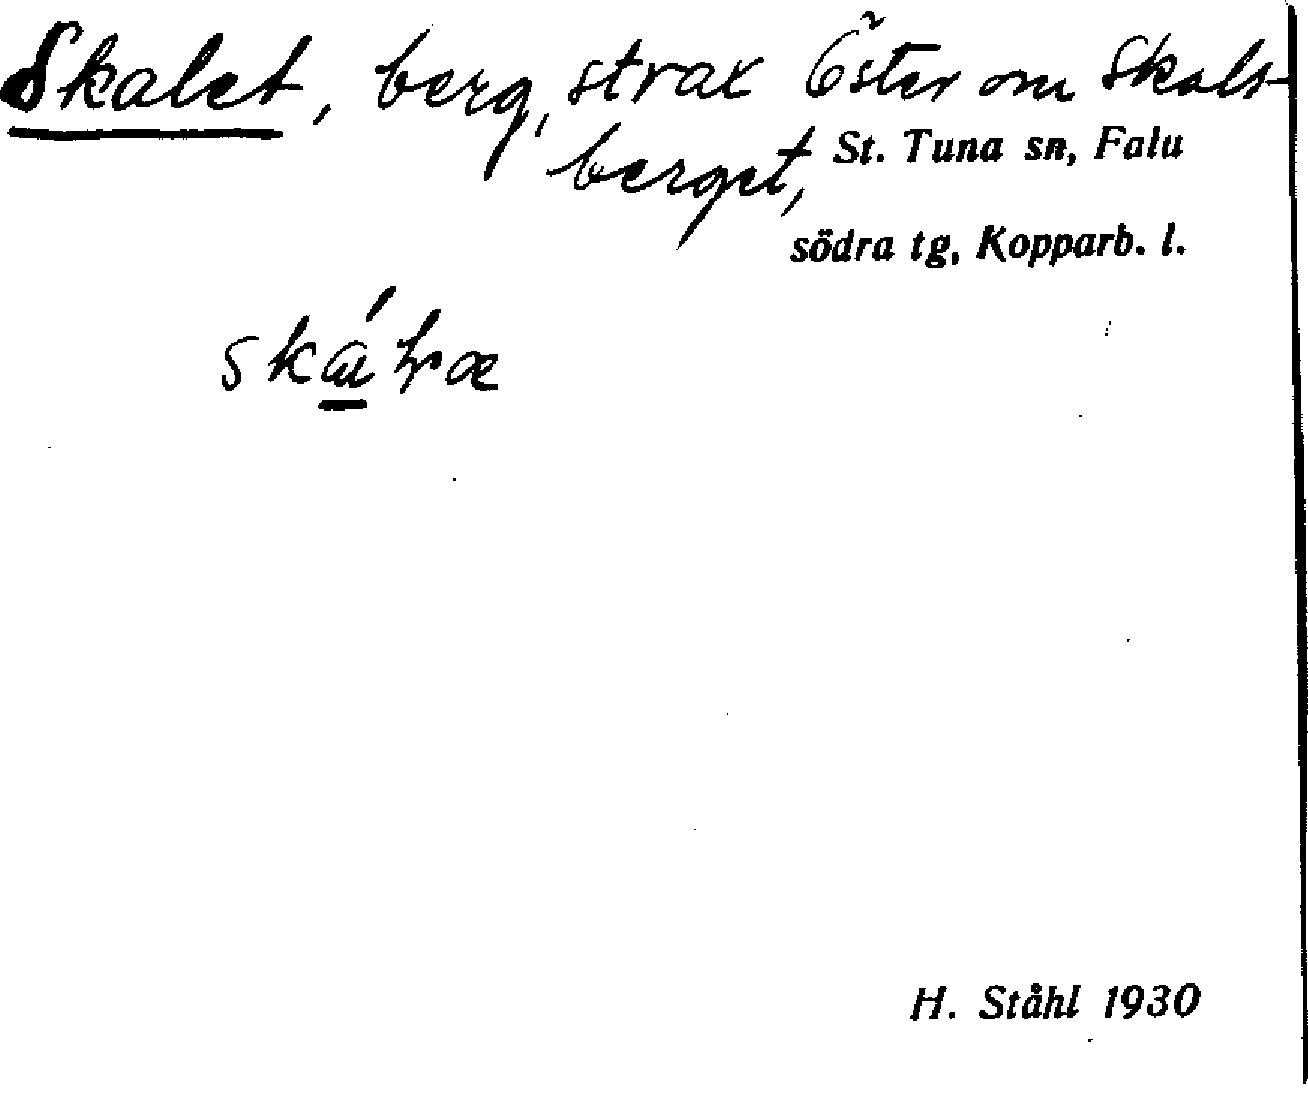 Skalet, berg, strax Öster om Skals-
berget,
St. Tuna sn, Falu
södra tg, Kopparb. l.
H. Ståhl 1930